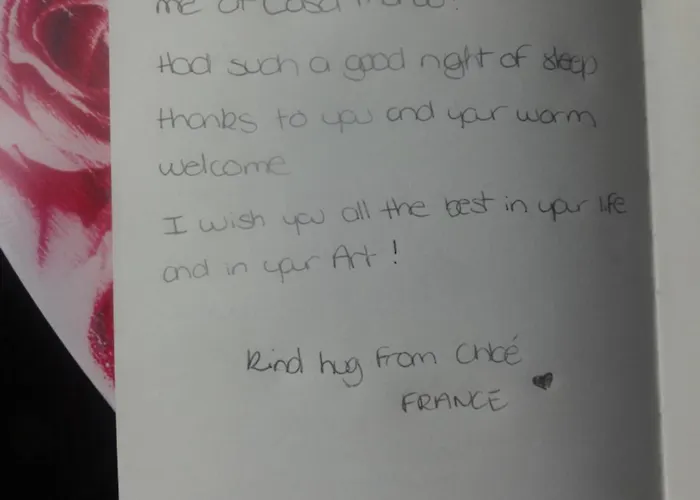 me at Casa
Had such a good night of sleep
thanks to you and your warm
welcome
I wish you all the best in your life
and in your Art !
Kind hug from Chloé
FRANCE